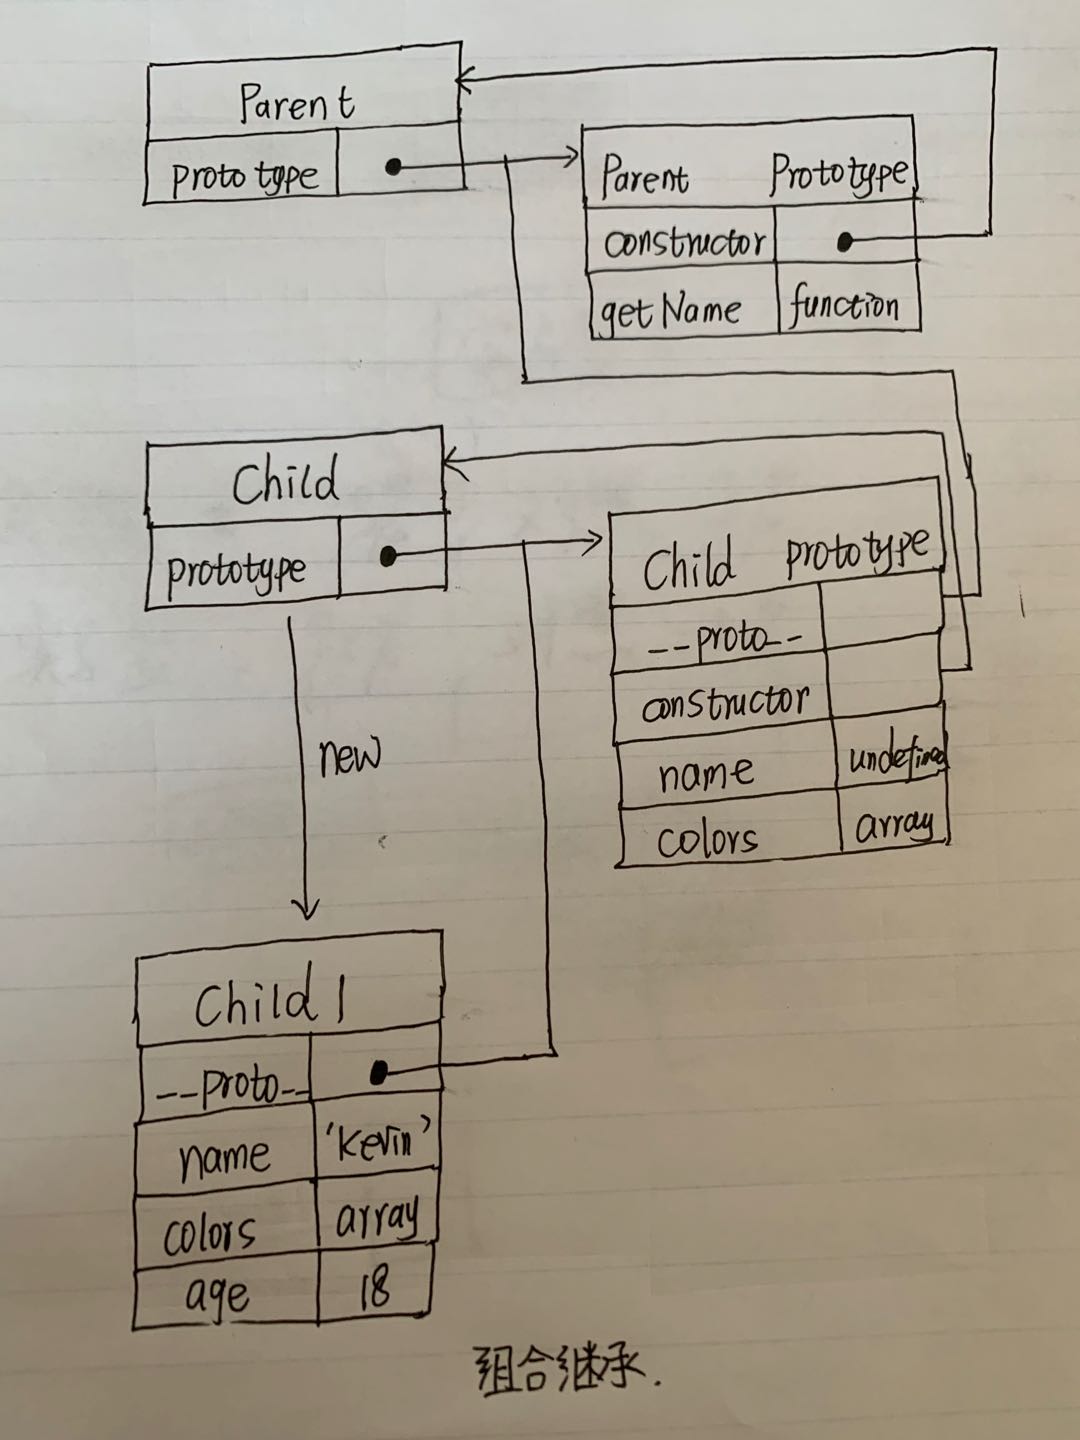 Parent
prototype
Parent Prototype
constructor
getName function
Child
prototype
Child prototype
--proto--
constructor
name undefined
colors array
new
Child 1
--proto--
name 'kevin'
colors array
age 18
组合继承.